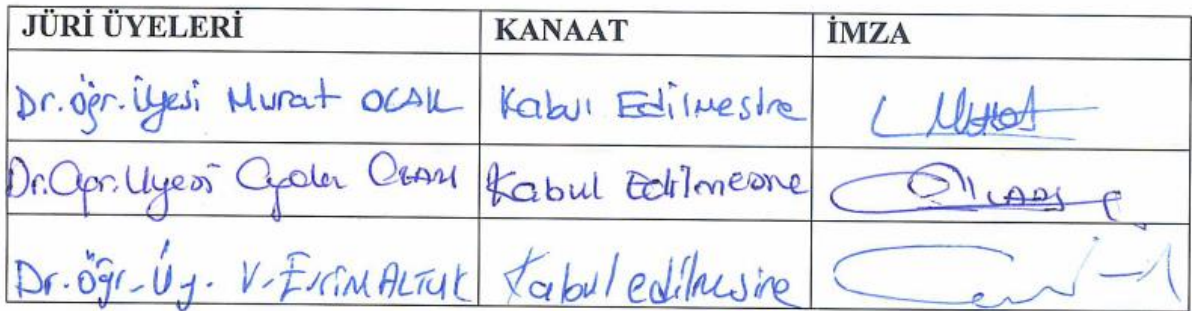 JÜRİ ÜYELERİ KANAAT İMZA
Dr. öğr. Üyesi Murat OCAK Kabul Edilmesine
Dr. Öğr. Üyesi Kabul Edilmesine
Dr. öğr. Üy. V. Evrim ALTUK Kabul edilmesine